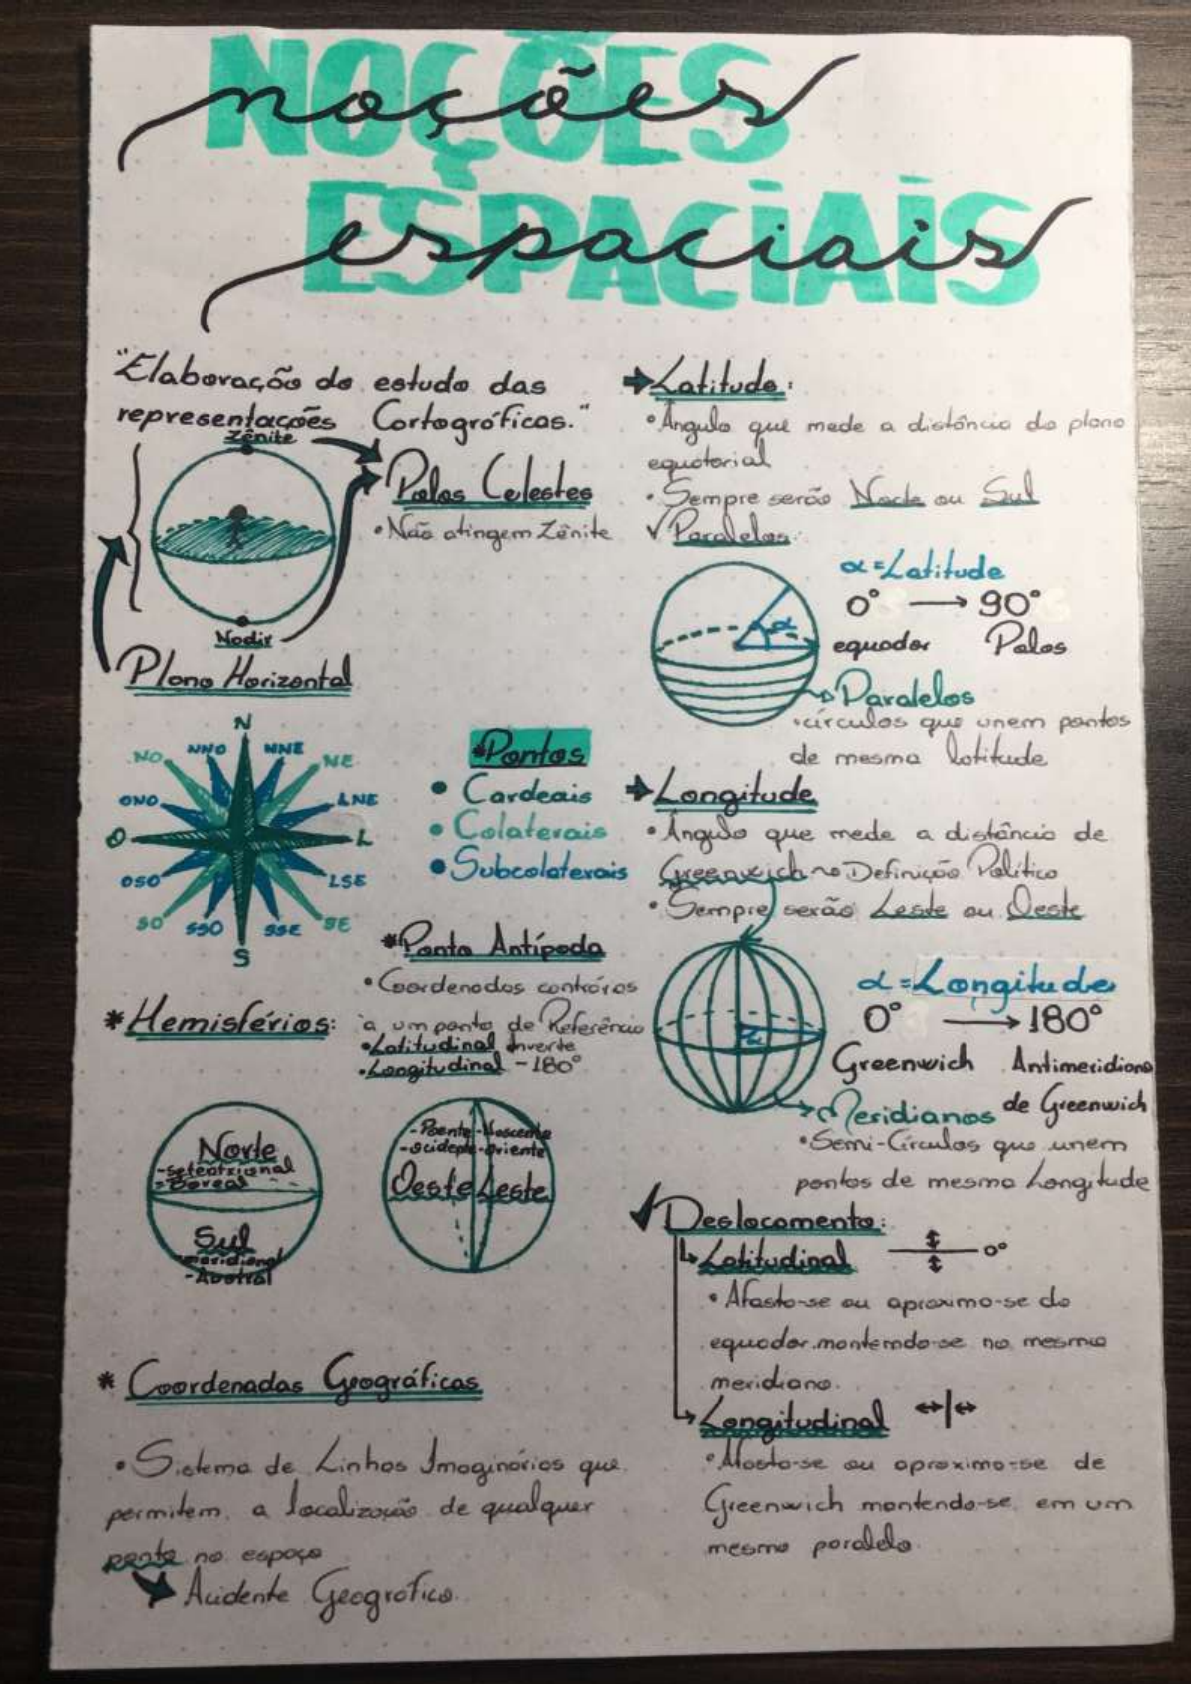 NOÇÕES
noções
ESPACIAIS
espaciais
"Elaboração do estudo das
representações Cartográficas."
Zênite
Polos Celestes
• Não atingem Zênite
Nadir
Plano Horizontal
N
NNO NNE
NO NE
ONO LNE
O L
OSO LSE
SO SE
SSO SSE
S
*Pontos
• Cardeais
• Colaterais
• Subcolaterais
*Ponto Antípoda
• Coordenadas contrárias
a um ponto de Referência
• Latitudinal inverte
• Longitudinal - 180°
*Hemisférios:
Norte
-setentrional
-Boreal
Sul
-meridional
-Austral
-Poente -Nascente
-ocidente -oriente
Oeste Leste
* Coordenadas Geográficas
• Sistema de Linhas Imaginárias que
permitem a localização de qualquer
ponto no espaço
Acidente Geográfico.
→ Latitude:
• Ângulo que mede a distância do plano
equatorial
• Sempre serão Norte ou Sul
√ Paralelos:
α = Latitude
0° → 90°
equador Polos
α
Paralelos
• círculos que unem pontos
de mesma latitude
→ Longitude
• Ângulo que mede a distância de
Greenwich ~ Definição Político
• Sempre serão Leste ou Oeste
α = Longitude
0° → 180°
Greenwich Antimeridiano
de Greenwich
α
Meridianos
• Semi-Círculos que unem
pontos de mesmo Longitude
√ Deslocamento:
Latitudinal 0°
• Afasta-se ou aproxima-se do
equador mantendo-se no mesmo
meridiano.
Longitudinal
• Afasta-se ou aproxima-se de
Greenwich mantendo-se em um
mesmo paralelo.